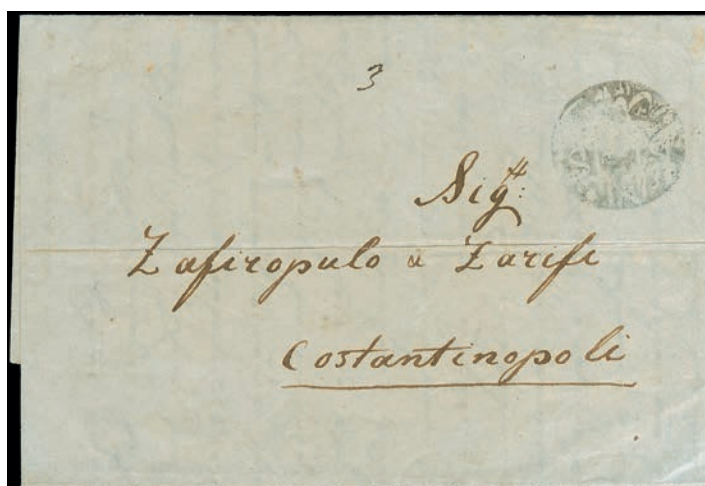 3
Sig:
Zafiropulo a Zarifi
Costantinopoli